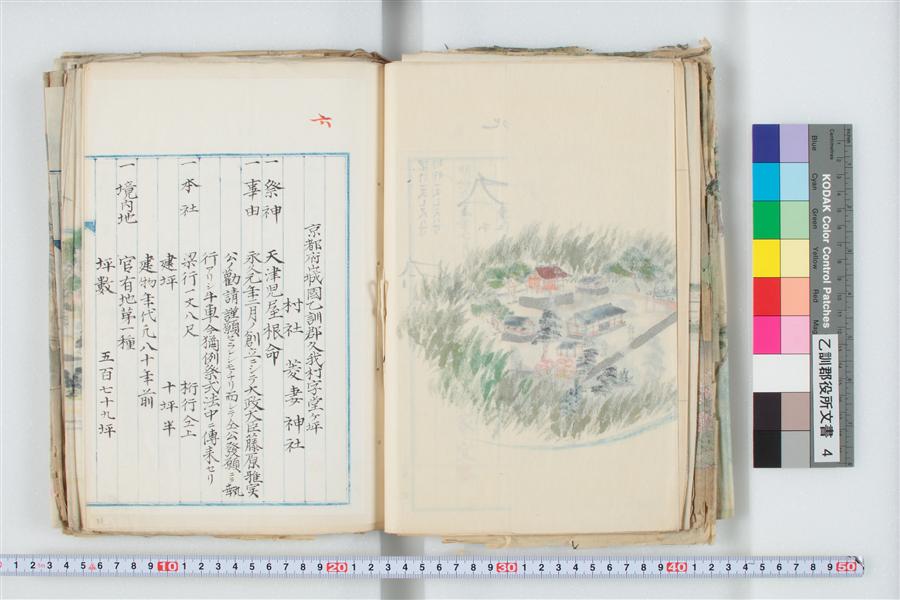 京都府山城國乙訓郡久我村字堂ヶ坪
村社 菱妻神社
一 祭神 天津児屋根命
一 事由 永久元年二月創立ニシテ太政大臣藤原雅実
公ノ勧請謹願セラレシモナリ而シテ公發願ニテ執
行アリシ牛車今猶例祭式法中ニ傳来セリ
一 本社 梁行一丈八尺 桁行仝上
建坪 十坪半
建物年代凡八十年前
一 境内地 官有地第一種
坪數 五百七十九坪
KODAK Color Control Patches
Blue
Cyan
Green
Yellow
Red
Mag
Centimetres
乙訓郡役所文書 4
10 20 30 40 50